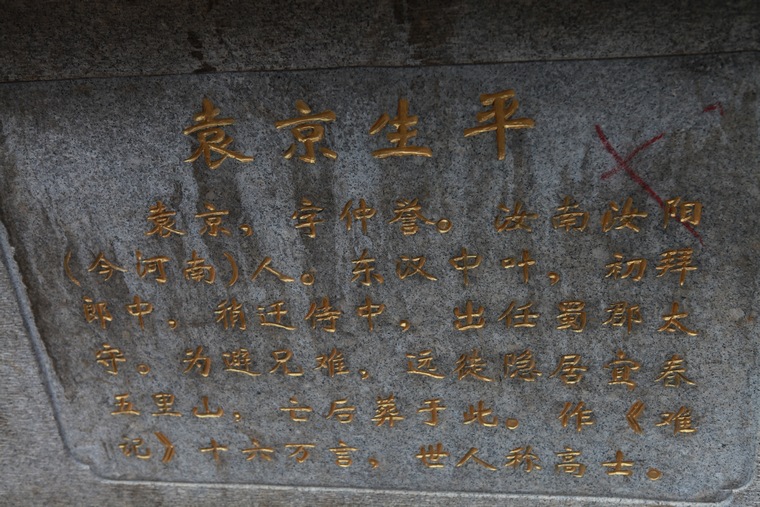 袁京生平
袁京，字仲誉。汝南汝阳
（今河南）人。东汉中叶，初拜
郎中，稍迁侍中，出任蜀郡太
守。为避兄难，远徒隐居宜春
五里山，亡后葬于此。作《难
记》十六万言，世人称高士。